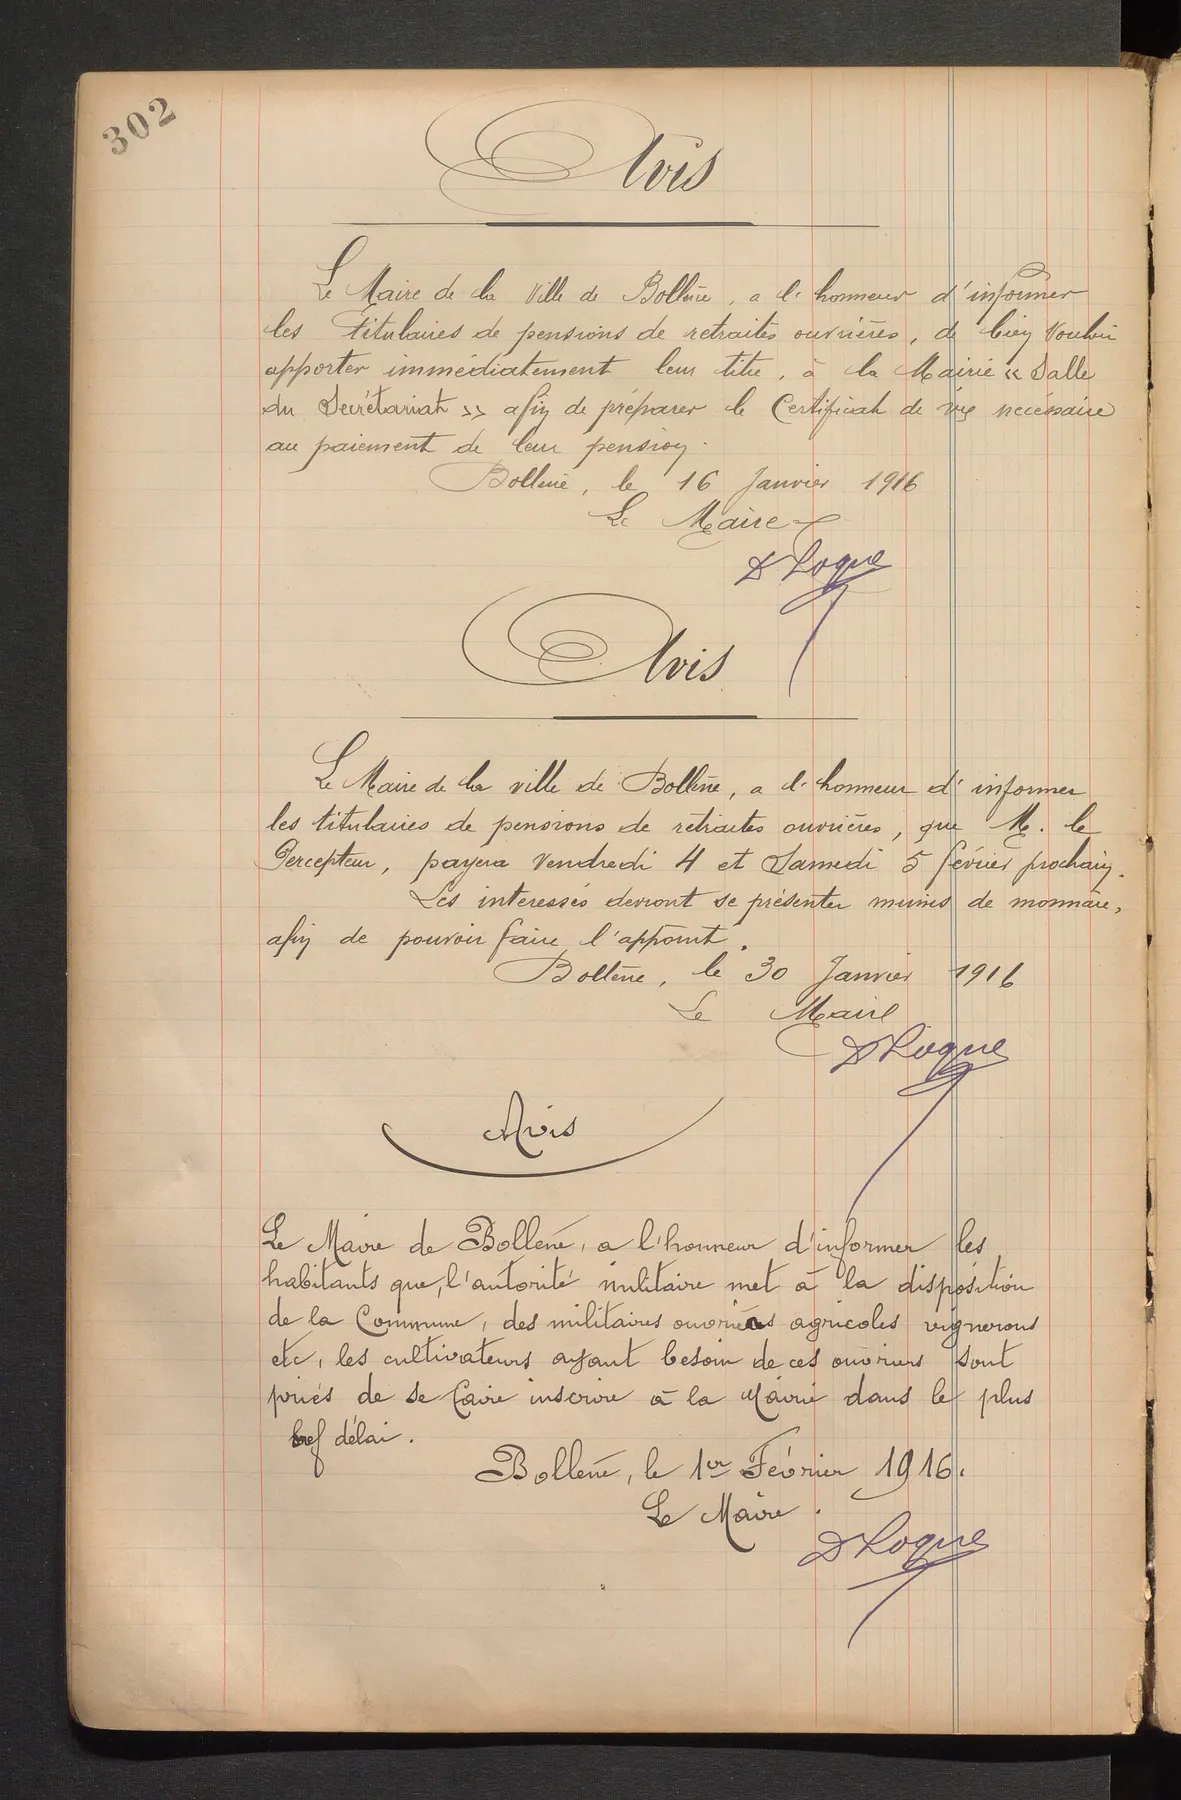 302
Avis
Le Maire de la Ville de Bollène, a l'honneur d'informer
les titulaires de pensions de retraites ouvrières, de bien Vouloir
apporter immédiatement leur titre, à la Mairie « Salle
du Secrétariat » afin de préparer le Certificat de vie nécessaire
au paiement de leur pension.
Bollène, le 16 Janvier 1916
Le Maire
D Loque
Avis
Le Maire de la ville de Bollène, a l'honneur d'informer
les titulaires de pensions de retraites ouvrières, que M. le
Percepteur, payera Vendredi 4 et Samedi 5 février prochain.
Les intéressés devront se présenter munis de monnaie,
afin de pouvoir faire l'appoint.
Bollène, le 30 Janvier 1916
Le Maire
D Loque
Avis
Le Maire de Bollène, a l'honneur d'informer les
habitants que, l'autorité militaire met à la disposition
de la Commune, des militaires ouvriers agricoles vignerons
etc, les cultivateurs ayant besoin de ces ouvriers sont
priés de se faire inscrire à la Mairie dans le plus
bref délai.
Bollène, le 1er Février 1916.
Le Maire.
D Loque